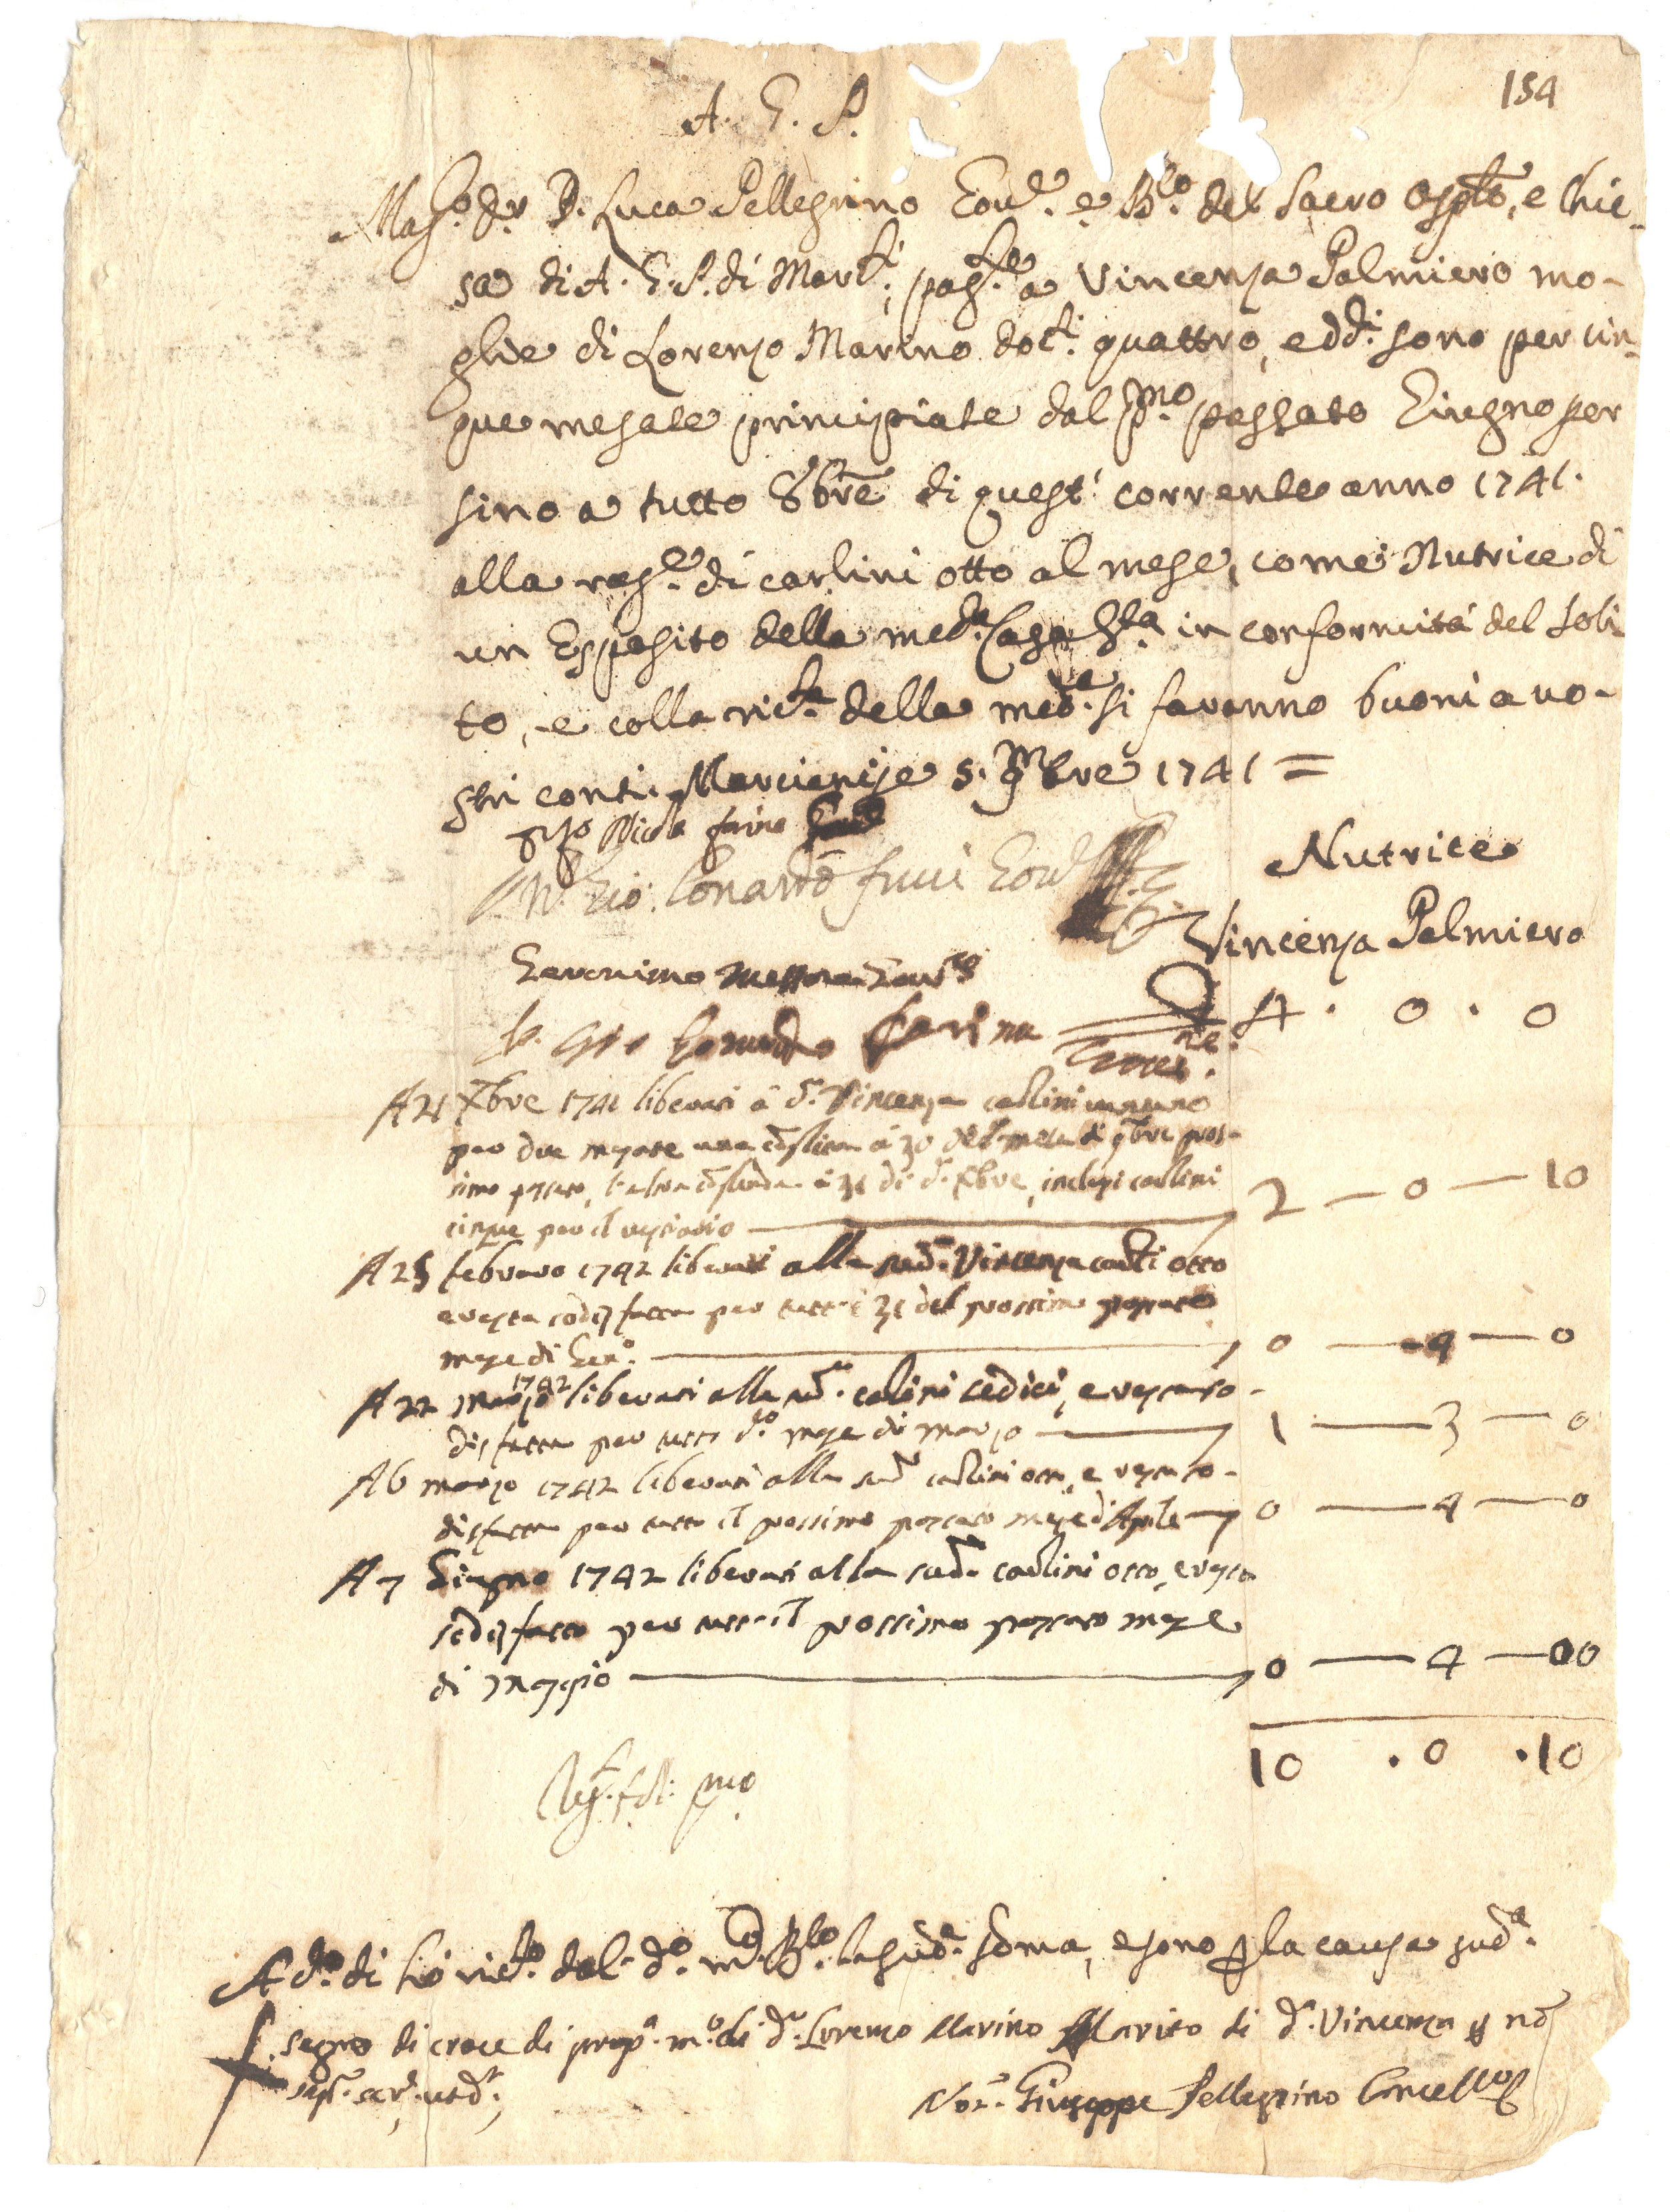 154
A. G. P.
Mag.co Sr. D. Luca Pellegrino Gou.re e B.lo del Sacro Osp.le, e Chie-
sa di A. G. P. di Marc.i, pag.te a Vincenza Palmiero mo-
glie di Lorenzo Marino doc.ti quattro, e dd.i sono per cin-
que mesate principiate dal p.mo passato Giugno per
sino a tutto 8bre di quest' corrente anno 1741.
alla rag.e di carlini otto al mese, come Nutrice di
un Esposito della med.a Casa S.ta in conformità del soli
to, e colla ric.ta della med.a si faranno buoni a vo-
stri conti. Marcianise 5. 9mbre 1741 =
Nicola farina
Gio: Gou.re
Nutrice
Vincenza Palmiero
Geronimo Gou.re
Farina
4 . 0 . 0
A 21 Xbre 1741 liberati a d.a Vincenza carlini
per due mesate una a 30 del mese di 9bre pros-
simo passato, l'altra a 31 di d.o Xbre, inclusi carlini
cinque per il vestiario 2 — 0 — 10
A 25 febraro 1742 liberati alla sud.a Vincenza carl.i otto
e resta sodisfatta per tutti i 31 del prossimo passato
mese di Gen.o 0 — 4 — 0
A 22 marzo 1742 liberati alla sud.a carlini sedici, e resta so-
disfatta per tutto d.o mese di marzo 1 — 3 — 0
A 6 marzo 1742 liberati alla sud.a carlini otto, e resta so-
disfatta per tutto il prossimo passato mese d'Aprile 0 — 4 — 0
A 7 Giugno 1742 liberati alla sud.a carlini otto, e resta
sodisfatta per tutto il prossimo passato mese
di Maggio 0 — 4 — 00
10 . 0 . 10
A d.o di hò ric.to dal d.o m.co B.lo la sud.a soma, e sono p la causa sud.a
segno di croce di prop.a m.o di d.o Lorenzo Marino Marito di d.a Vincenza p nō
sap.e scr.e ut d.r
Not.r Giuseppe Pellegrino Cancell.o